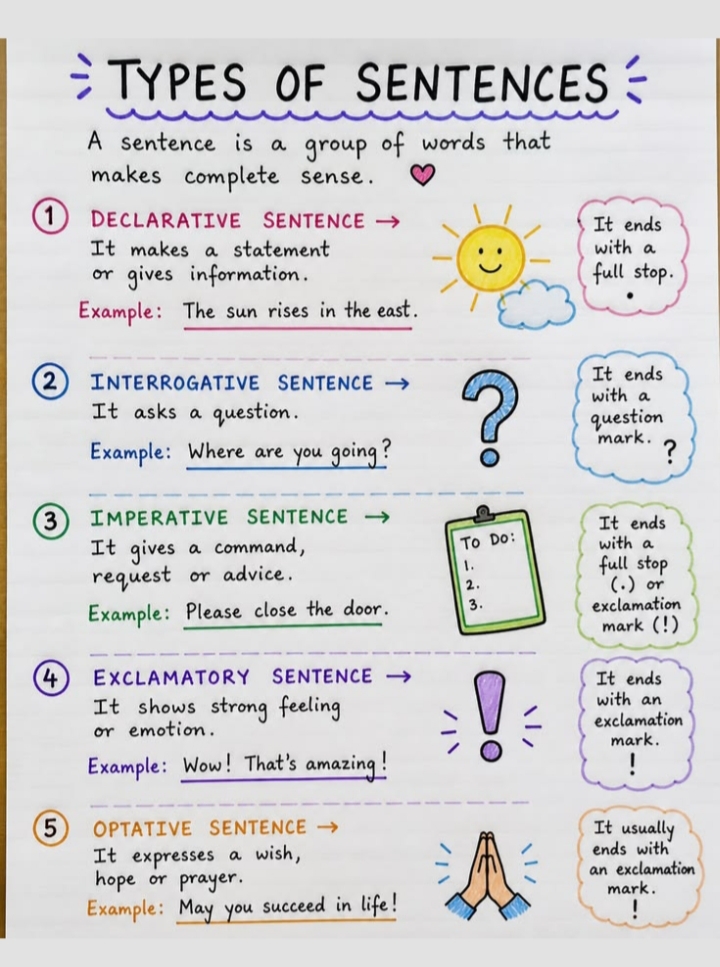 TYPES OF SENTENCES
A sentence is a group of words that
makes complete sense.
1 DECLARATIVE SENTENCE →
It makes a statement
or gives information.
Example: The sun rises in the east.
It ends
with a
full stop.
.
2 INTERROGATIVE SENTENCE →
It asks a question.
Example: Where are you going?
It ends
with a
question
mark.
?
?
3 IMPERATIVE SENTENCE →
It gives a command,
request or advice.
Example: Please close the door.
To Do:
1.
2.
3.
It ends
with a
full stop
(.) or
exclamation
mark (!)
4 EXCLAMATORY SENTENCE →
It shows strong feeling
or emotion.
Example: Wow! That's amazing!
!
It ends
with an
exclamation
mark.
!
5 OPTATIVE SENTENCE →
It expresses a wish,
hope or prayer.
Example: May you succeed in life!
It usually
ends with
an exclamation
mark.
!